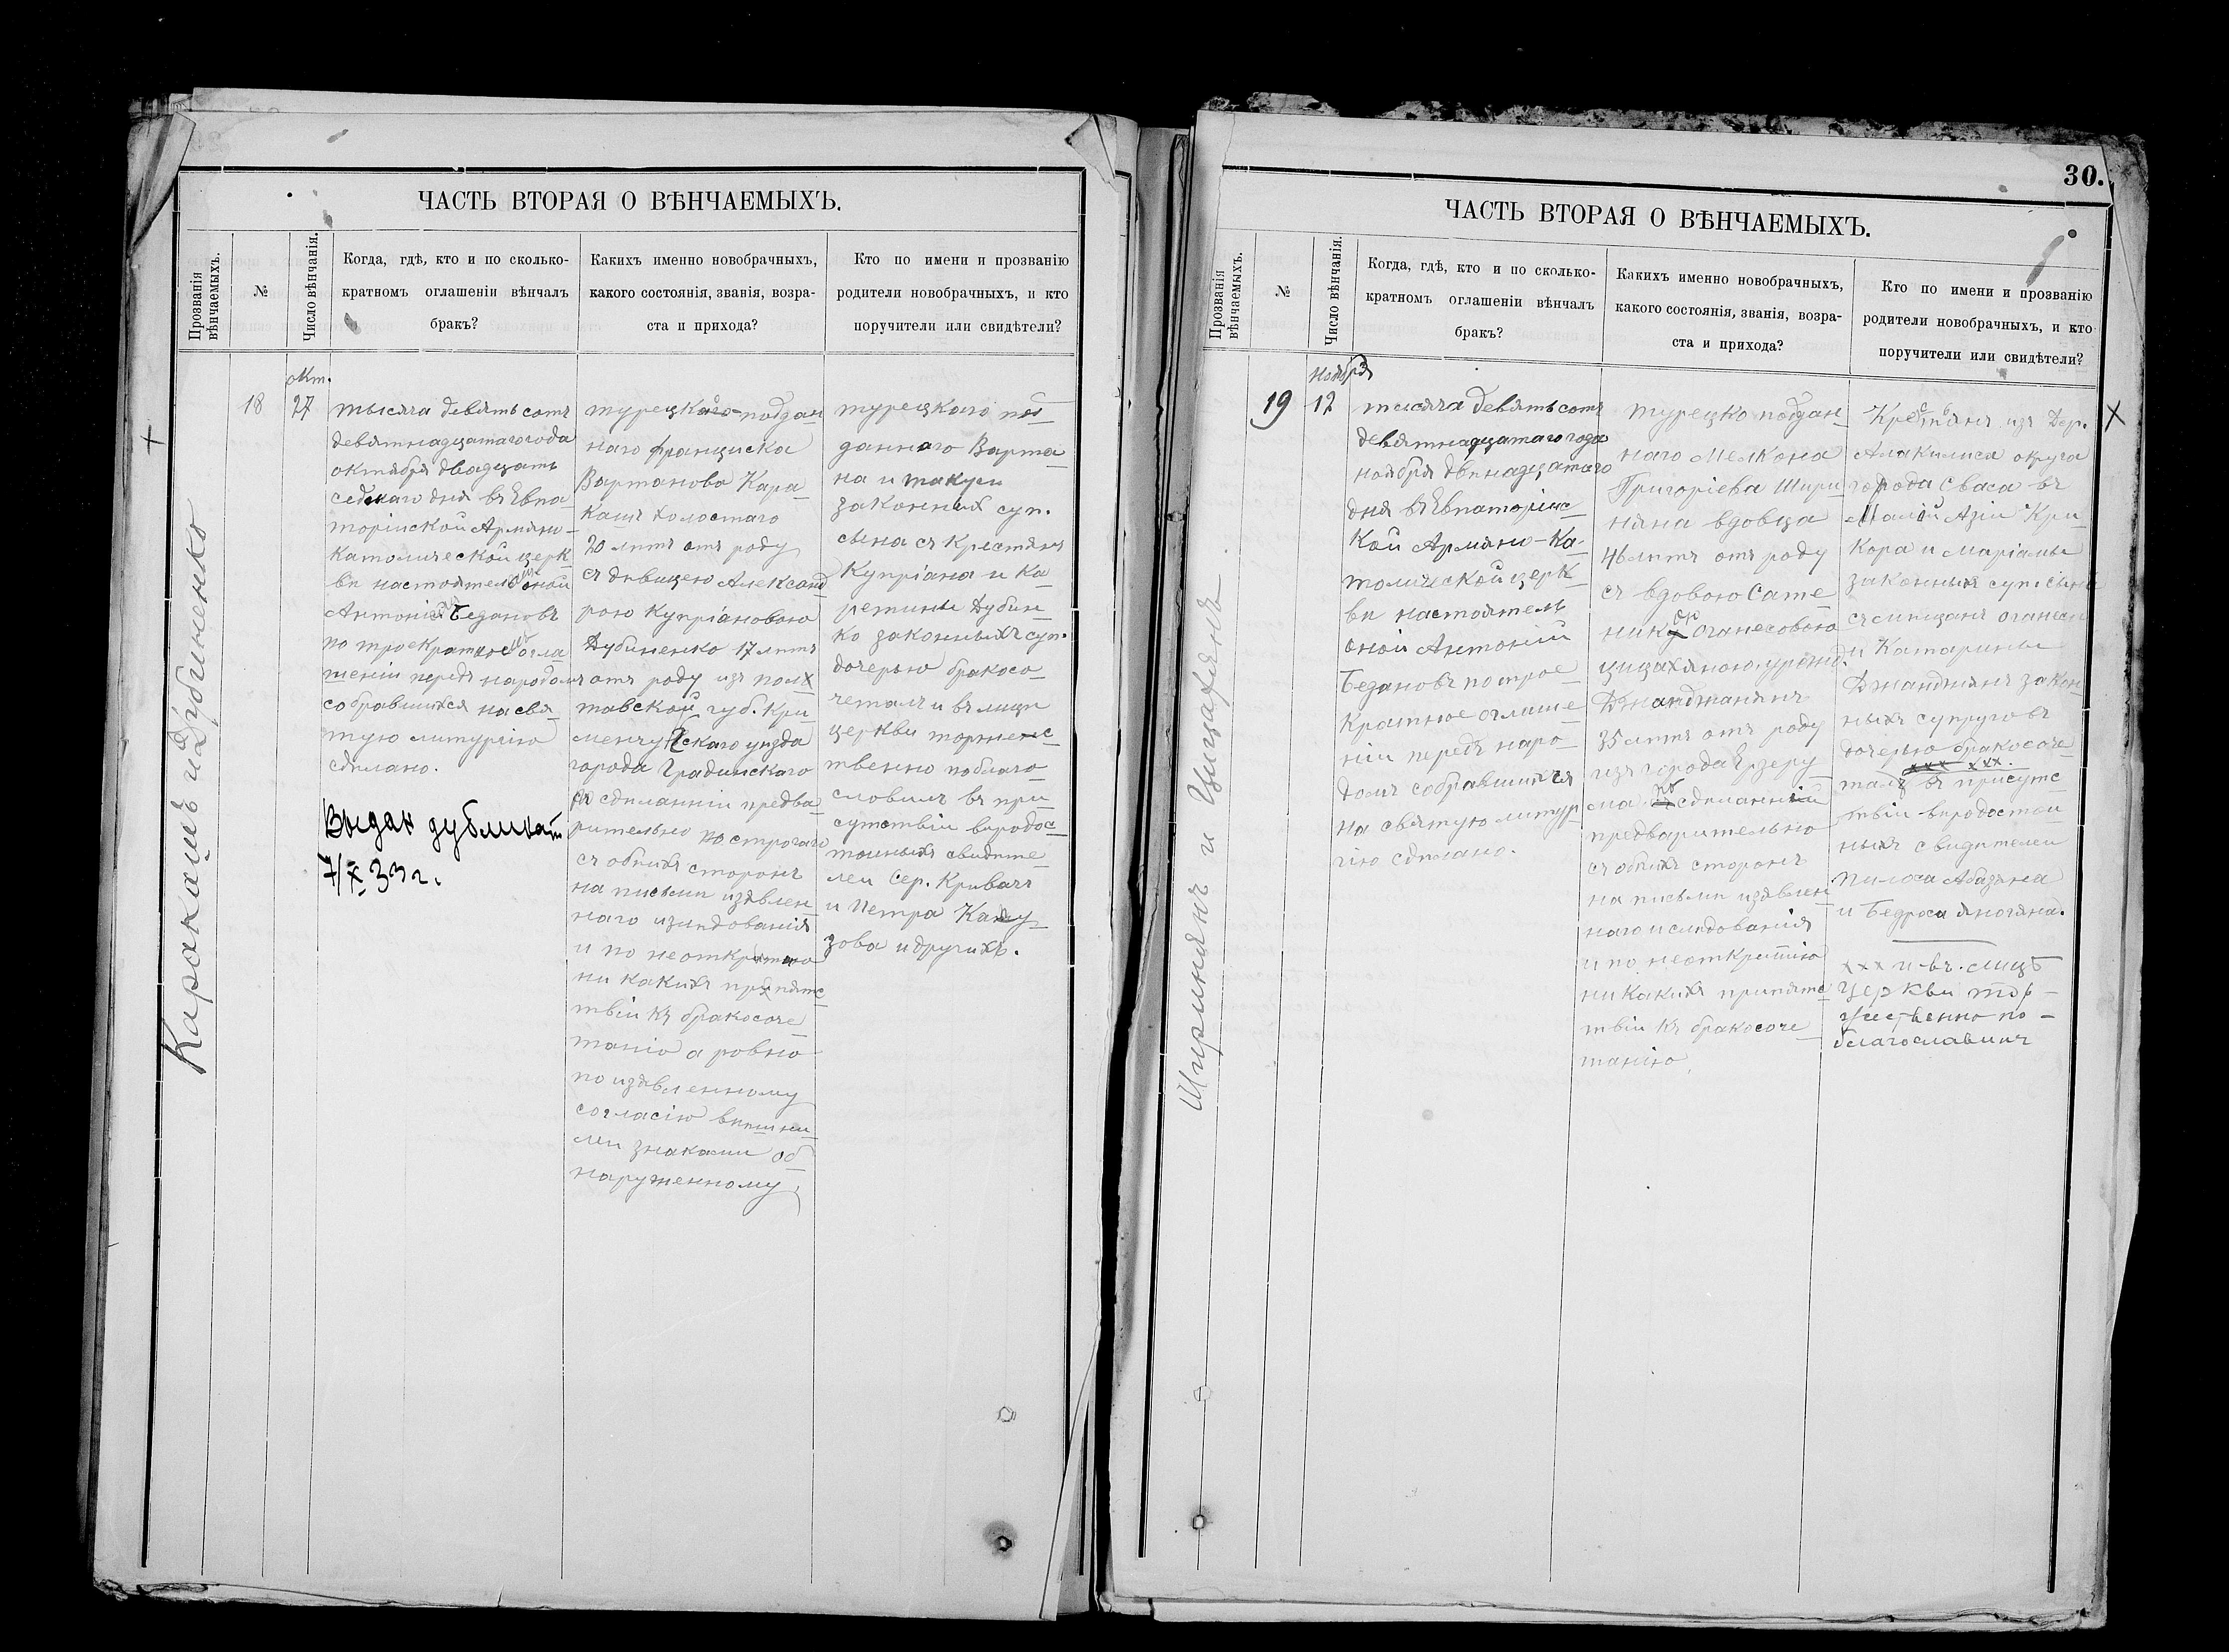 ЧАСТЬ ВТОРАЯ О ВѢНЧАЕМЫХЪ.
Прозванія
вѣнчаемыхъ.
№
Число вѣнчанія.
Когда, гдѣ, кто и по сколько-
кратномъ оглашеніи вѣнчалъ
бракъ?
Какихъ именно новобрачныхъ,
какого состоянія, званія, возра-
ста и прихода?
Кто по имени и прозванію
родители новобрачныхъ, и кто
поручители или свидѣтели?
Каракашъ и Дубиненко
18
окт.
27
тысяча девятьсотъ
девятнадцатаго года
октября двадцать
седьмаго дня въ Евпа
торійской Армяно-
Католической церк
ви настоятель оной
Антоній Бедановъ
по троекратное огла
шеніи передъ народомъ
собравшихся на свя
тую литургію
сдѣлано.
Выдан дубликат
7/X 33 г.
турецкаго-поддан
наго Франциска
Вартанова Кара
кашъ холостаго
20 лѣтъ отъ роду
съ дѣвицею Александ
рою Купріановою
Дубиненко 17 лѣтъ
отъ роду изъ Пол
тавской губ. Кре
менчугскаго уѣзда
города Градинскаго
по сдѣланніи предва
рительно по строгаго
съ обѣихъ сторонъ
на письми изъявлен
наго изслѣдованія
и по неоткрытію
ни какихъ препятс
твій къ бракосоче
танію а ровно
по изъявленному
согласію внѣшни
ми знаками об
наруженному
турецкаго под
даннаго Варта
на и Такуги
законныхъ суп.
сына съ Крестянъ
Купріана и Ка
ретины Дубин
ко законныхъ суп.
дочерью бракосо
четалъ и въ лицѣ
церкви торжес
твенно поблаго
словилъ въ при
сутствіи виродос
тоиныхъ свидѣте
леи Сер. Кривачъ
и Петра
зова и другихъ.
30.
ЧАСТЬ ВТОРАЯ О ВѢНЧАЕМЫХЪ.
Прозванія
вѣнчаемыхъ.
№
Число вѣнчанія.
Когда, гдѣ, кто и по сколько-
кратномъ оглашеніи вѣнчалъ
бракъ?
Какихъ именно новобрачныхъ,
какого состоянія, званія, возра-
ста и прихода?
Кто по имени и прозванію
родители новобрачныхъ, и кто
поручители или свидѣтели?
Ширинянъ и Цицахянъ
19
ноября
12
тысяча девятьсотъ
девятнадцатаго года
ноября двѣнадцатаго
дня въ Евпаторійс
кой Армяно-Ка-
толической церк
ви настоятель
оной Антоній
Бедановъ по трое
кратное оглаше
ніи передъ наро
домъ собравшихся
на святую литур
гію сдѣлано.
турецко поддан
наго Мелкона
Григоріева Шири
няна вдовца
46 лѣтъ отъ роду
съ вдовою Сате
никъ Оганесовою
Цицахяною, урожд.
Джанджанянъ
35 лѣтъ отъ роду
изъ города Ерзеру
ма по сдѣланніи
предварительно
съ обѣихъ сторонъ
на письми изъявлен
наго ислѣдованія
и по неоткрытію
ни какихъ припятс
твіи къ бракосоче
танію.
Крестьянъ изъ дер.
Алакилиса округа
города Сваса въ
Малой Азіи Кри
кора и Маріамы
законныхъ суп. сына
съ мищанъ Оганеса
и Катарины
Джанджянъ закон
ныхъ супруговъ
дочерью бракосоче
талъ ххх въ присутс
твіи виродостои
ныхъ свидителеи
Абазяна
и Бедроса Яногяна.
ххх и въ лицѣ
Церкви тор-
жественно по-
благославилъ